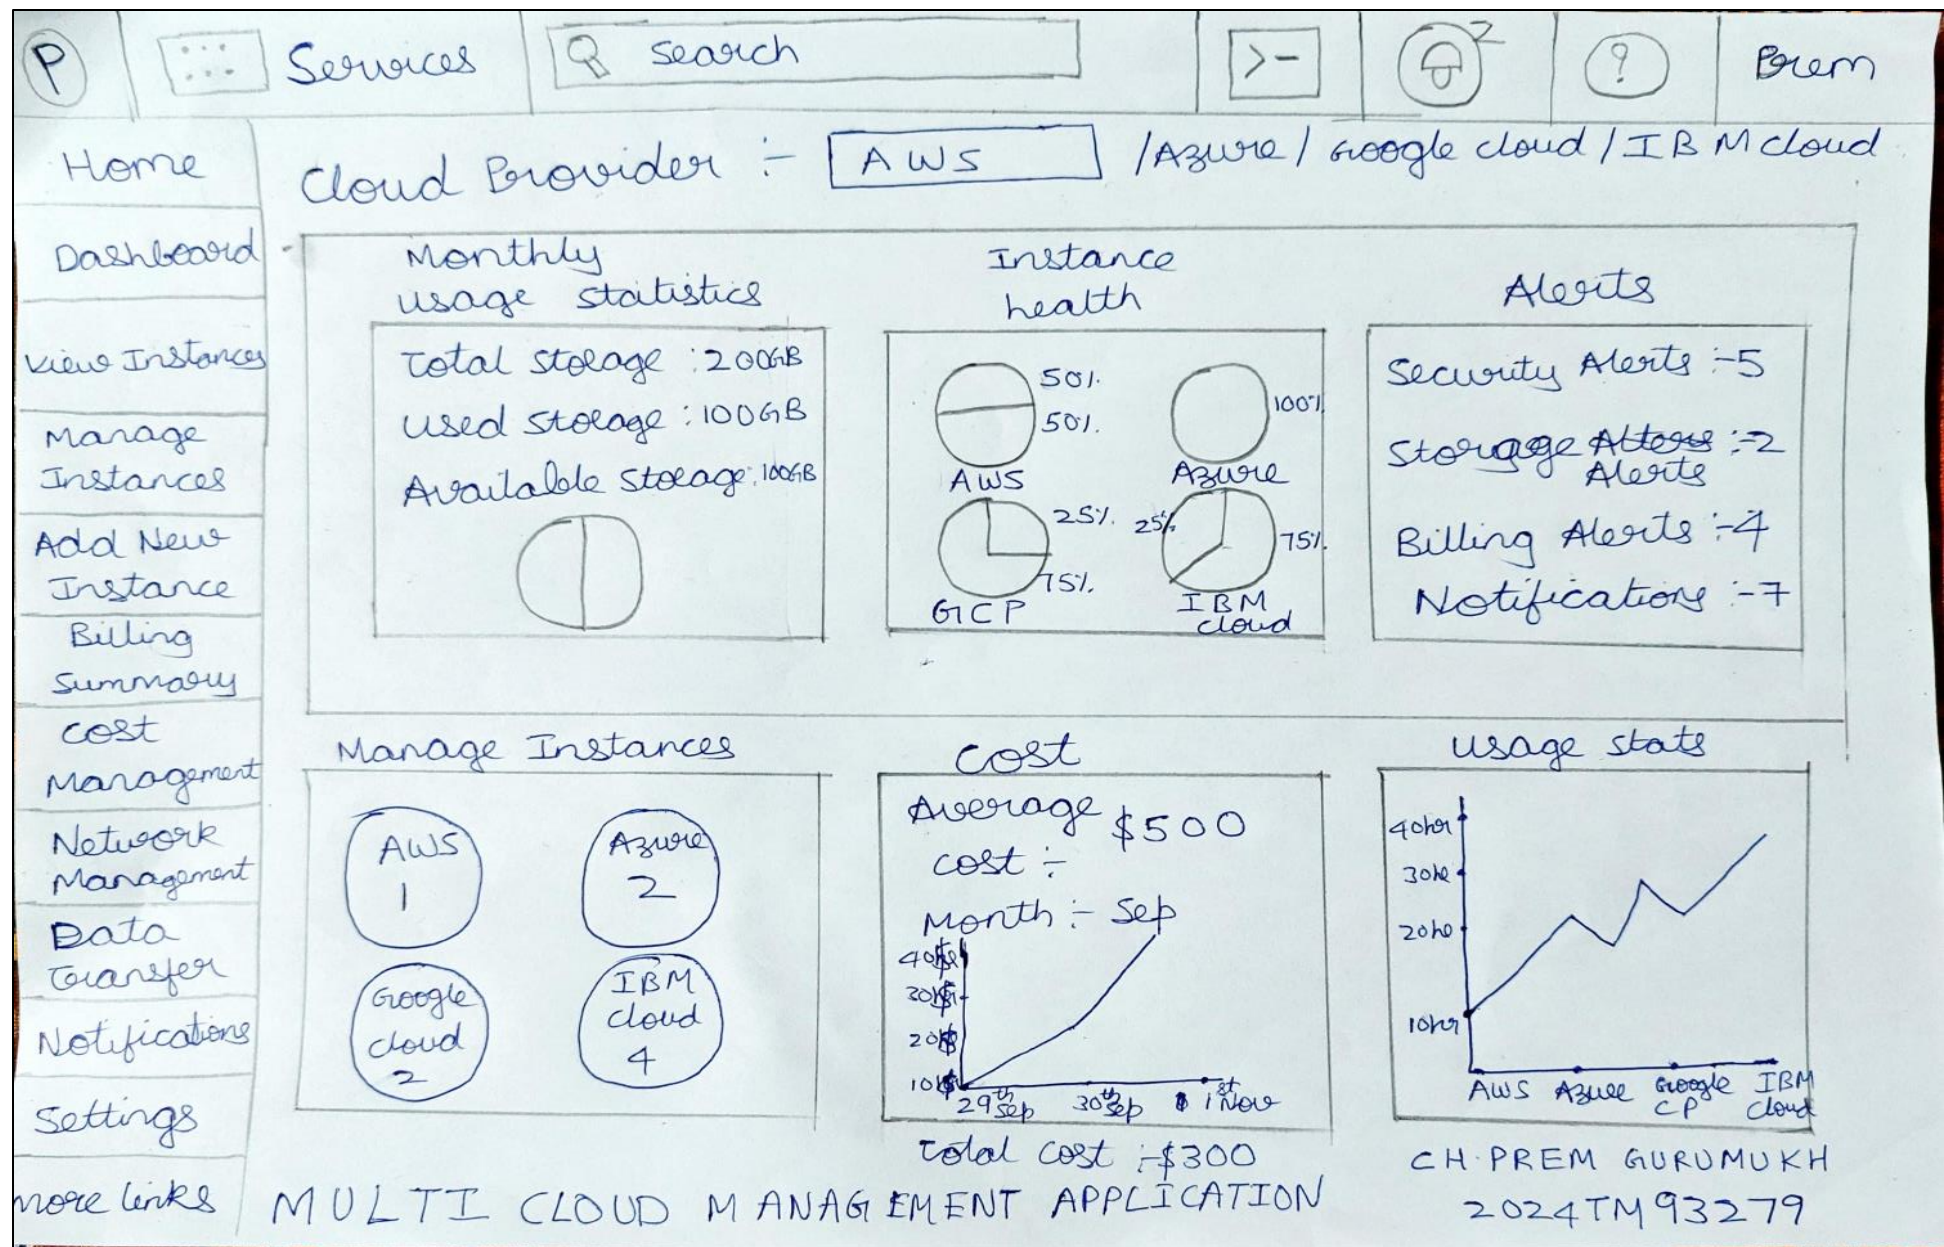 P
Services
Search
>-
2
?
Prem
Home
Dashboard
View Instances
Manage
Instances
Add New
Instance
Billing
Summary
Cost
Management
Network
Management
Data
Transfer
Notifications
Settings
More links
Cloud Provider :- AWS /Azure/ Google cloud / IBM cloud
Monthly
usage statistics
Total Storage : 200GB
Used Storage : 100GB
Available Storage: 100GB
Instance
health
50%.
50%.
AWS
100%
Azure
25%.
75%.
GCP
25%
75%.
IBM
cloud
Alerts
Security Alerts :-5
Storage Alters :-2
Alerts
Billing Alerts :-4
Notifications :-7
Manage Instances
AWS
1
Azure
2
Google
cloud
2
IBM
cloud
4
Cost
Average $500
cost :-
Month :- Sep
40$
30$
20$
10$
29th Sep
30th Sep
1st Nov
Total cost :-$300
Usage stats
40hr
30hr
20hr
10hr
AWS
Azure
Google
CP
IBM
Cloud
MULTI CLOUD MANAGEMENT APPLICATION
CH. PREM GURUMUKH
2024TM93279